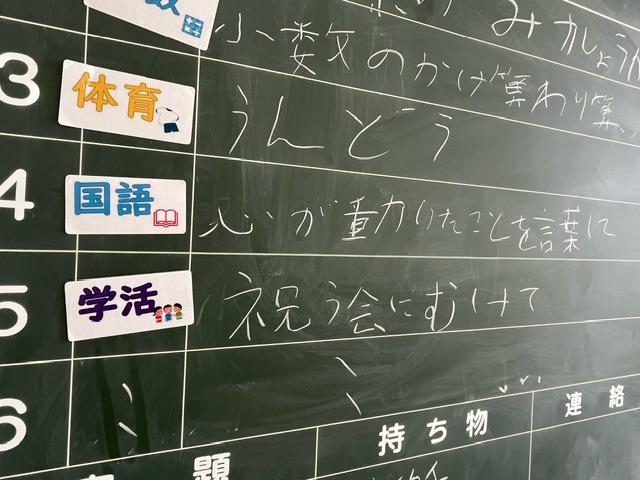 数
みかじょうろ
小数のかけ算わり算
3 体育 うんどう
4 国語 心が動いたことを言葉に
5 学活 祝う会にむけて
6 ミ ミ
題 持ち物 連絡